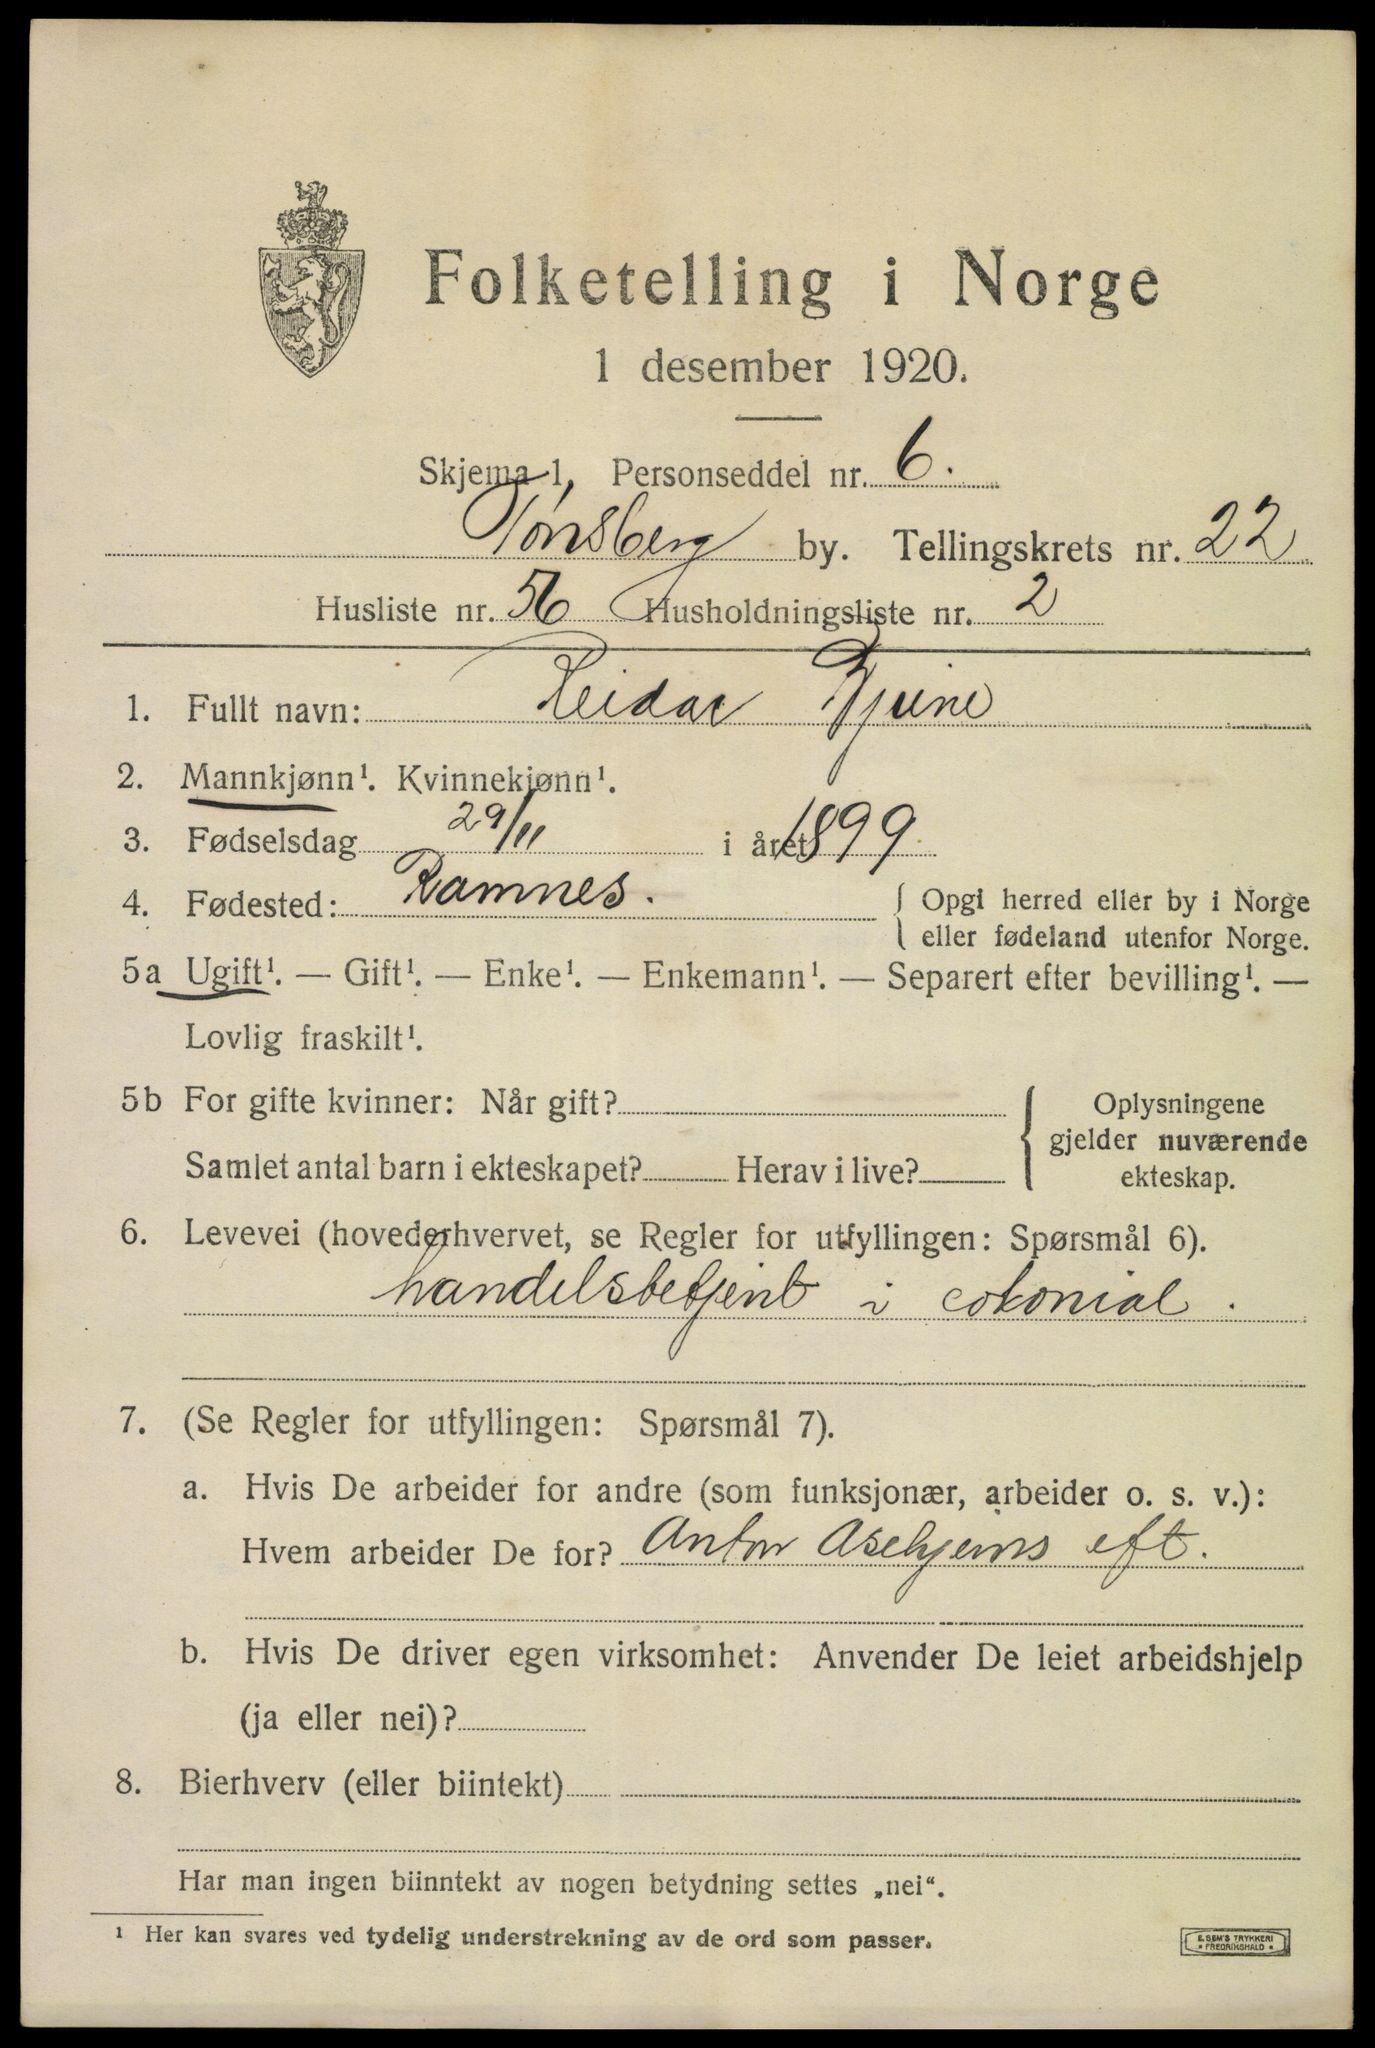 Folketelling i Norge
1 desember 1920.
Skjema 1, Personseddel nr. 6.
Tønsberg by. Tellingskrets nr. 22
Husliste nr. 56 Husholdningsliste nr. 2
1. Fullt navn: Reidar
2. Mannkjønn¹. Kvinnekjønn¹.
3. Fødselsdag 29/11 i året 1899
4. Fødested: Ramnes. { Opgi herred eller by i Norge
eller fødeland utenfor Norge.
5a Ugift¹. — Gift¹. — Enke¹. — Enkemann¹. — Separert efter bevilling¹. —
Lovlig fraskilt¹.
5b For gifte kvinner: Når gift? } Oplysningene
gjelder nuværende
Samlet antal barn i ekteskapet? Herav i live? ekteskap.
6. Levevei (hovederhvervet, se Regler for utfyllingen: Spørsmål 6).
handelsbetjent i colonial.
7. (Se Regler for utfyllingen: Spørsmål 7).
a. Hvis De arbeider for andre (som funksjonær, arbeider o. s. v.):
Hvem arbeider De for? Anton Asehjems eft.
b. Hvis De driver egen virksomhet: Anvender De leiet arbeidshjelp
(ja eller nei)?
8. Bierhverv (eller biintekt)
Har man ingen biinntekt av nogen betydning settes „nei“.
¹ Her kan svares ved tydelig understrekning av de ord som passer.
E. SEM'S TRYKKERI
FREDRIKSHALD